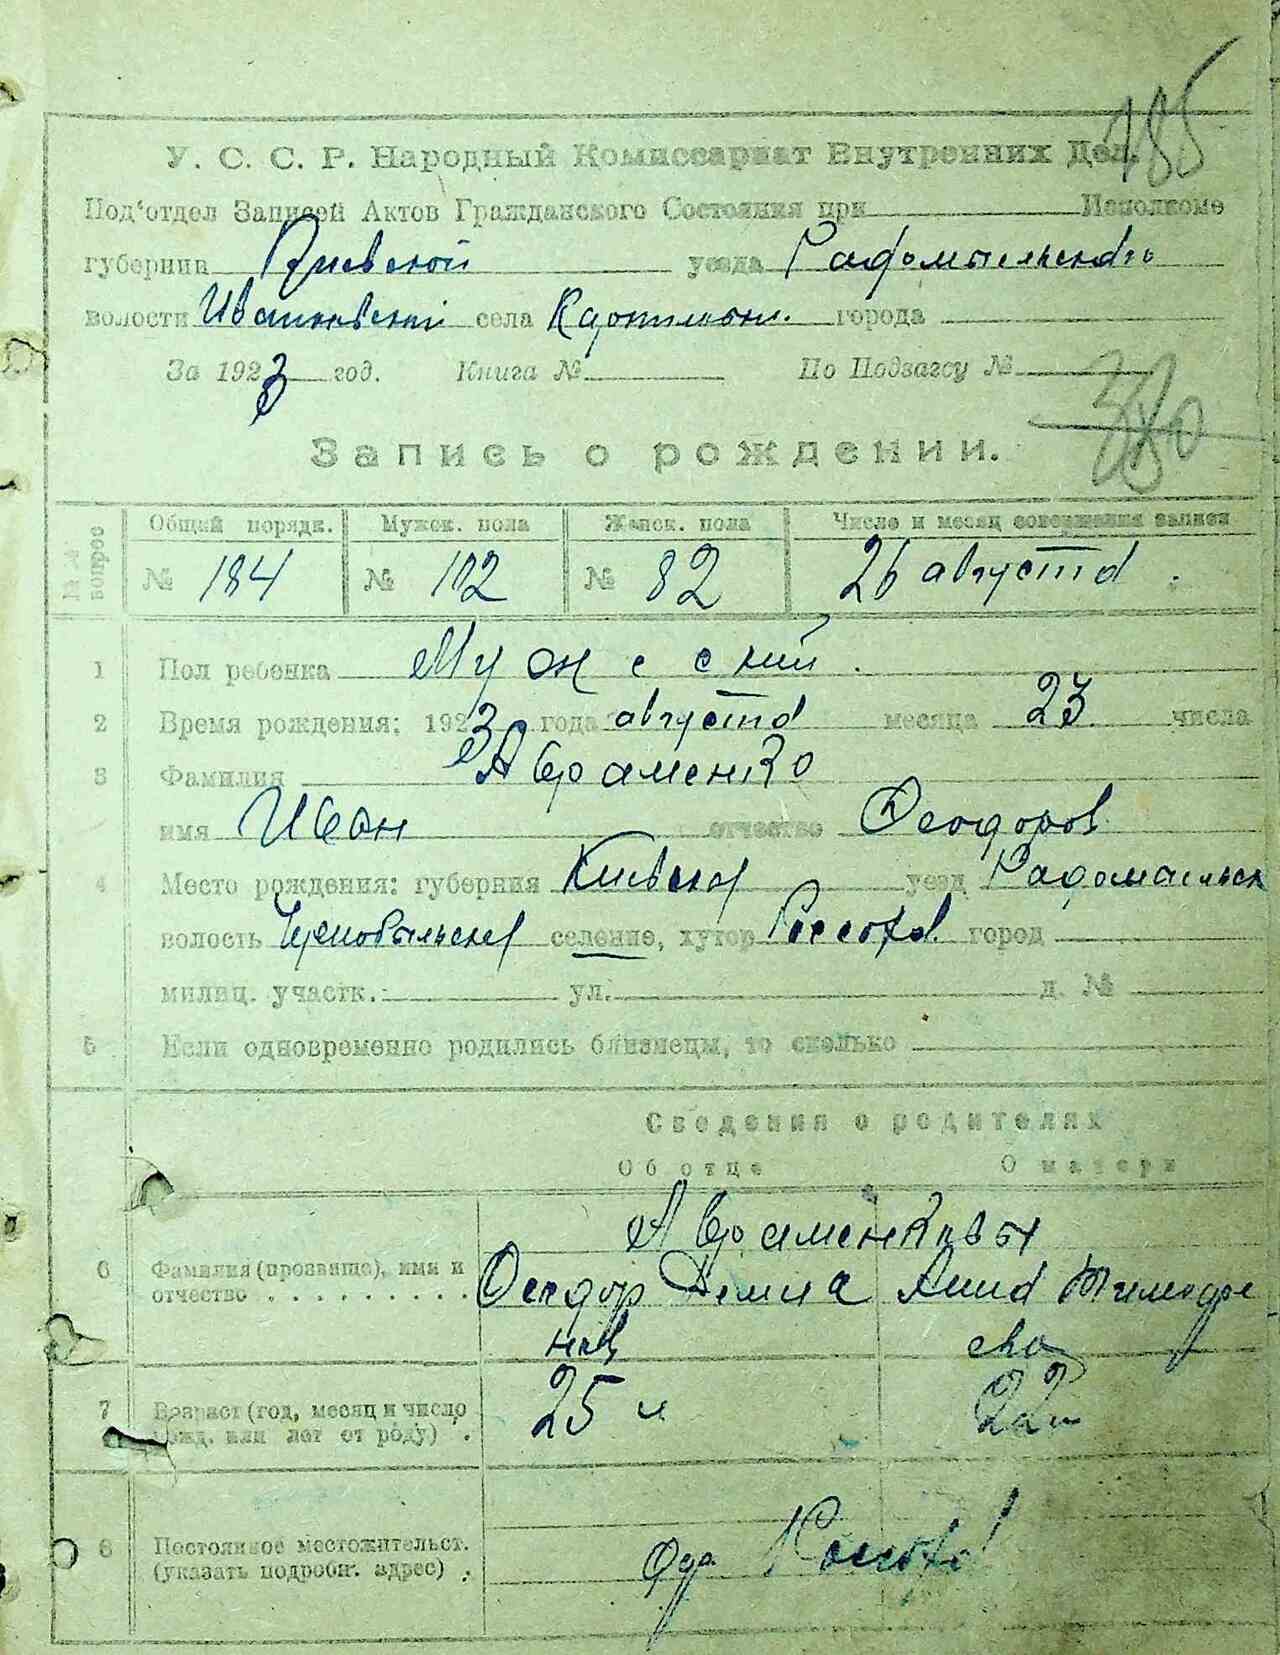 185
У. С. С. Р. Народный Комиссариат Внутренних Дел.
Под'отдел Записей Актов Гражданского Состояния при Исполкоме
губернии Киевской уезда Радомысльского
волости Иванковской села города
За 1923 год. Книга № По Подзагсу №
380
Запись о рождении.
№№ вопрос Общий порядк. Мужск. пола Женск. пола Число и месяц совершения записи
№ 184 № 102 № 82 26 августа
1 Пол ребенка Мужсский.
2 Время рождения: 1923 года августа месяца 23 числа
3 Фамилия Авраменко
имя Иван отчество Феодоров
4 Место рождения: губерния Киевская уезд Радомысльск
волость Чернобыльская селение, хутор Россоха город
милиц. участк. ул. д. №
5 Если одновременно родились близнецы, то сколько
Сведения о родителях
Об отце О матери
Авраменковы
6 Фамилия (прозвище), имя и отчество Феодор Анна Тимофее
ева
7 Возраст (год, месяц и число рожд. или лет от роду) 25 л 22 л
8 Постоянное местожительст. (указать подробн. адрес) Россоха